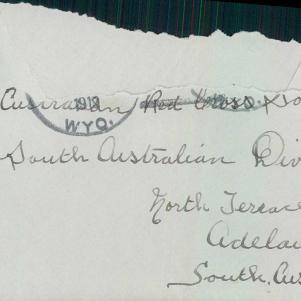 Australian Red Cross So
1918
WYO.
South Australian Div
North Terrace
Adelai
South. Aus